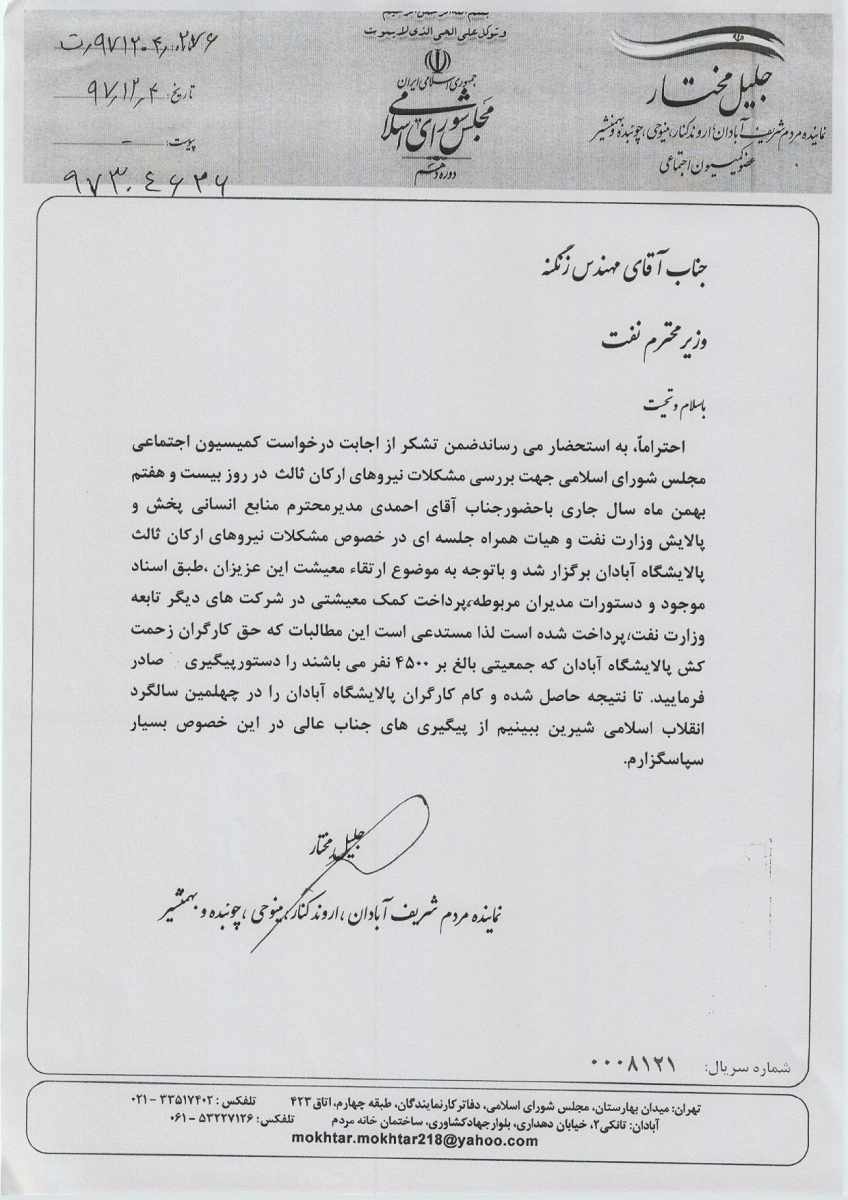 بسم الله الرحمن الرحیم
و توکل علی الحی الذی لا یموت
جمهوری اسلامی ایران
مجلس شورای اسلامی
دوره دهم
جلیل مختار
نماینده مردم شریف آبادان، اروندکنار، مینوحی، چوئبده و بهمنشیر
عضو کمیسیون اجتماعی
تاریخ: ۹۷/۱۲/۴
پیوست: -
۹۷۳۰۴۶۳۶
جناب آقای مهندس زنگنه
وزیر محترم نفت
باسلام و تحیت
احتراماً، به استحضار می رساندضمن تشکر از اجابت درخواست کمیسیون اجتماعی
مجلس شورای اسلامی جهت بررسی مشکلات نیروهای ارکان ثالث در روز بیست و هفتم
بهمن ماه سال جاری باحضورجناب آقای احمدی مدیرمحترم منابع انسانی پخش و
پالایش وزارت نفت و هیات همراه جلسه ای در خصوص مشکلات نیروهای ارکان ثالث
پالایشگاه آبادان برگزار شد و باتوجه به موضوع ارتقاء معیشت این عزیزان ،طبق اسناد
موجود و دستورات مدیران مربوطه،پرداخت کمک معیشتی در شرکت های دیگر تابعه
وزارت نفت،پرداخت شده است لذا مستدعی است این مطالبات که حق کارگران زحمت
کش پالایشگاه آبادان که جمعیتی بالغ بر ۴۵۰۰ نفر می باشند را دستورپیگیری صادر
فرمایید. تا نتیجه حاصل شده و کام کارگران پالایشگاه آبادان را در چهلمین سالگرد
انقلاب اسلامی شیرین ببینیم از پیگیری های جناب عالی در این خصوص بسیار
سپاسگزارم.
جلیل مختار
نماینده مردم شریف آبادان ،اروندکنار، مینوحی ،چوئبده و بهمنشیر
شماره سریال: ۰۰۰۸۱۲۱
تهران: میدان بهارستان، مجلس شورای اسلامی، دفاترکارنمایندگان، طبقه چهارم، اتاق۴۲۳ تلفکس : ۳۳۵۱۷۴۰۲-۰۲۱
آبادان: تانکی۲، خیابان دهداری، بلوارجهادکشاوری، ساختمان خانه مردم تلفکس: ۵۳۲۲۷۱۲۶-۰۶۱
mokhtar.mokhtar218@yahoo.com